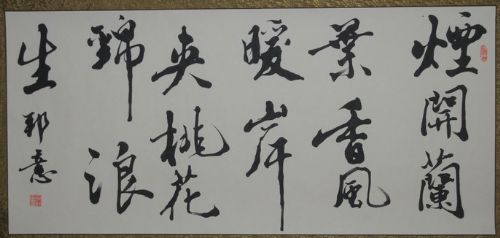 煙開蘭
葉香風
暖岸
夾桃花
錦浪
生